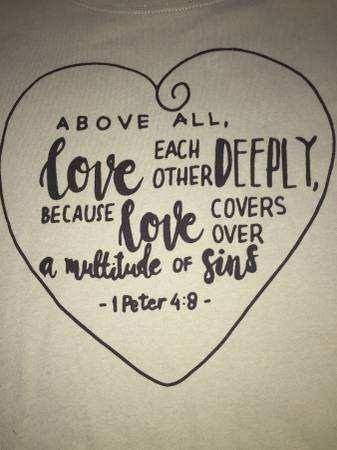 ABOVE ALL,
love EACH OTHER DEEPLY,
BECAUSE love COVERS OVER
a multitude OF sins
- 1 Peter 4:8 -